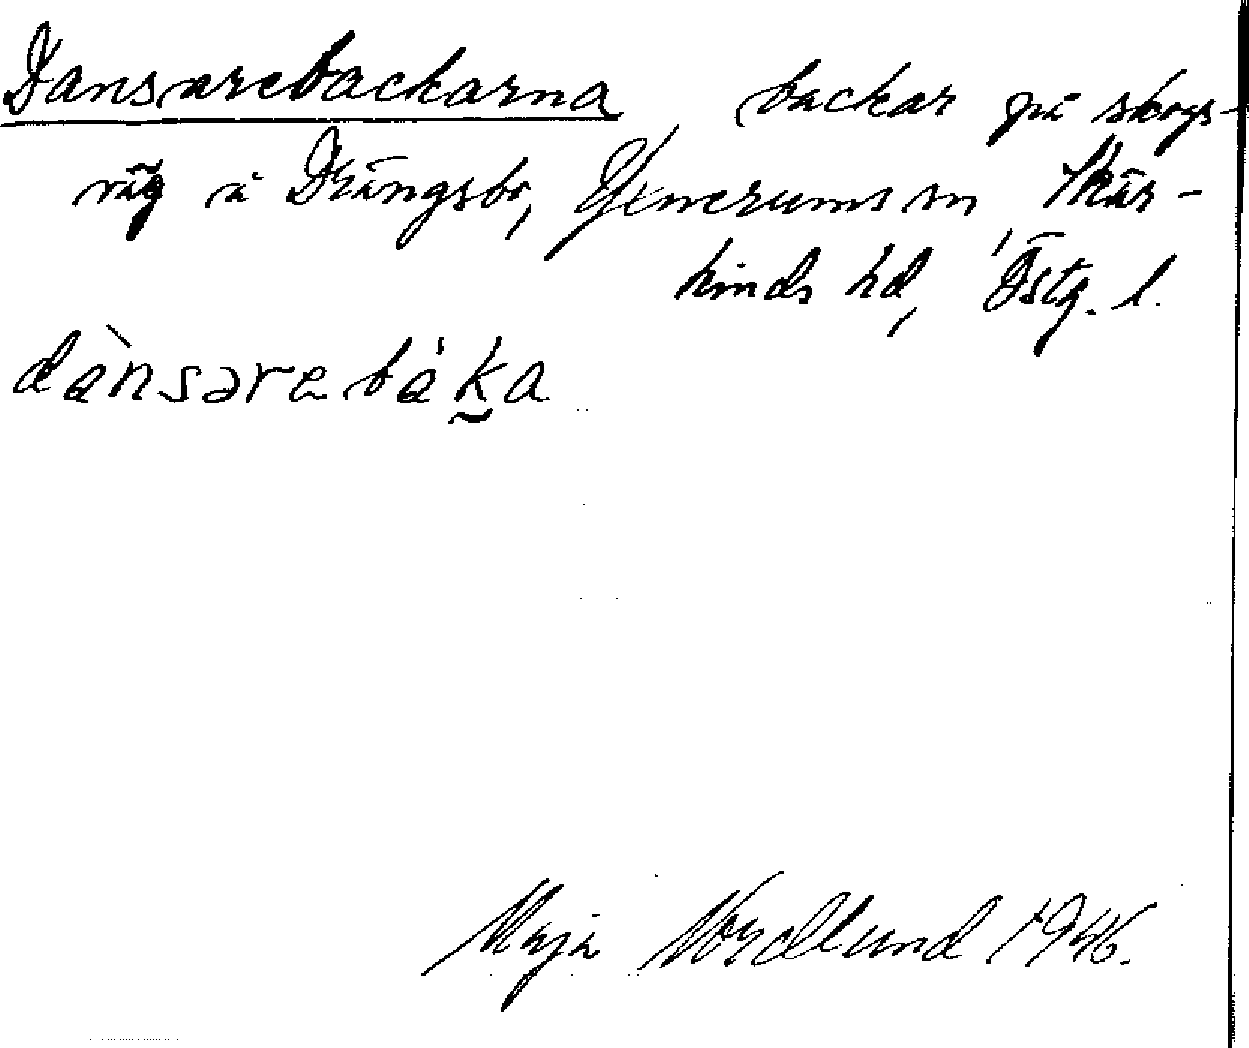 Dansarebackarna backar på skogs-
väg å Drängsbo, Yxnerums sn, Skär-
kinds hd, Östg. l.
dànsərebákа
Maja Nordlund 1946.